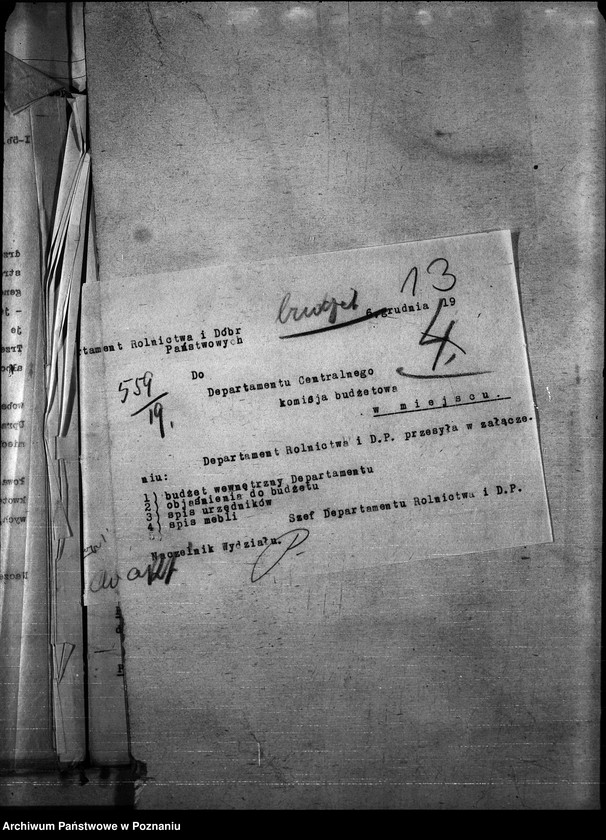 13
budżet
6.grudnia 19
rtament Rolnictwa i Dóbr
Państwowych
4.
559/19.
Do
Departamentu Centralnego
komisja budżetowa
w miejscu.
Departament Rolnictwa i D.P. przesyła w załącze-
niu:
1) budżet wewnętrzny Departamentu
2) objaśnienia do budżetu
3) spis urzędników
4) spis mebli
Szef Departamentu Rolnictwa i D.P.
Naczelnik Wydziału.
Archiwum Państwowe w Poznaniu